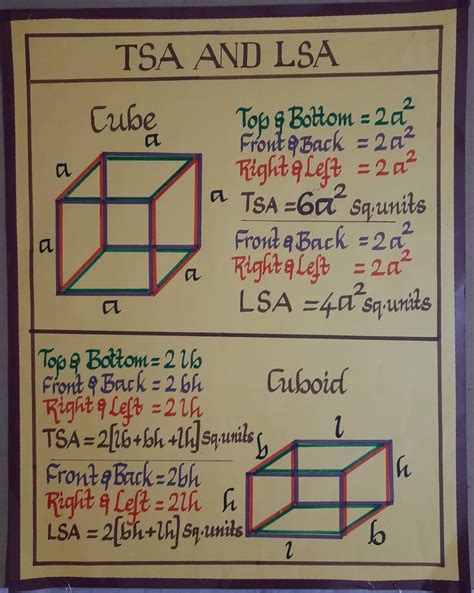 TSA AND LSA
Cube
a
a
a
a
a
a
Top & Bottom = 2a²
Front & Back = 2a²
Right & Left = 2a²
TSA = 6a² sq.units
Front & Back = 2a²
Right & Left = 2a²
LSA = 4a² sq.units
Top & Bottom = 2lb
Front & Back = 2bh
Right & Left = 2lh
TSA = 2[lb+bh+lh] sq.units
Front & Back = 2bh
Right & Left = 2lh
LSA = 2[bh+lh] sq.units
Cuboid
l
b
h
h
b
l